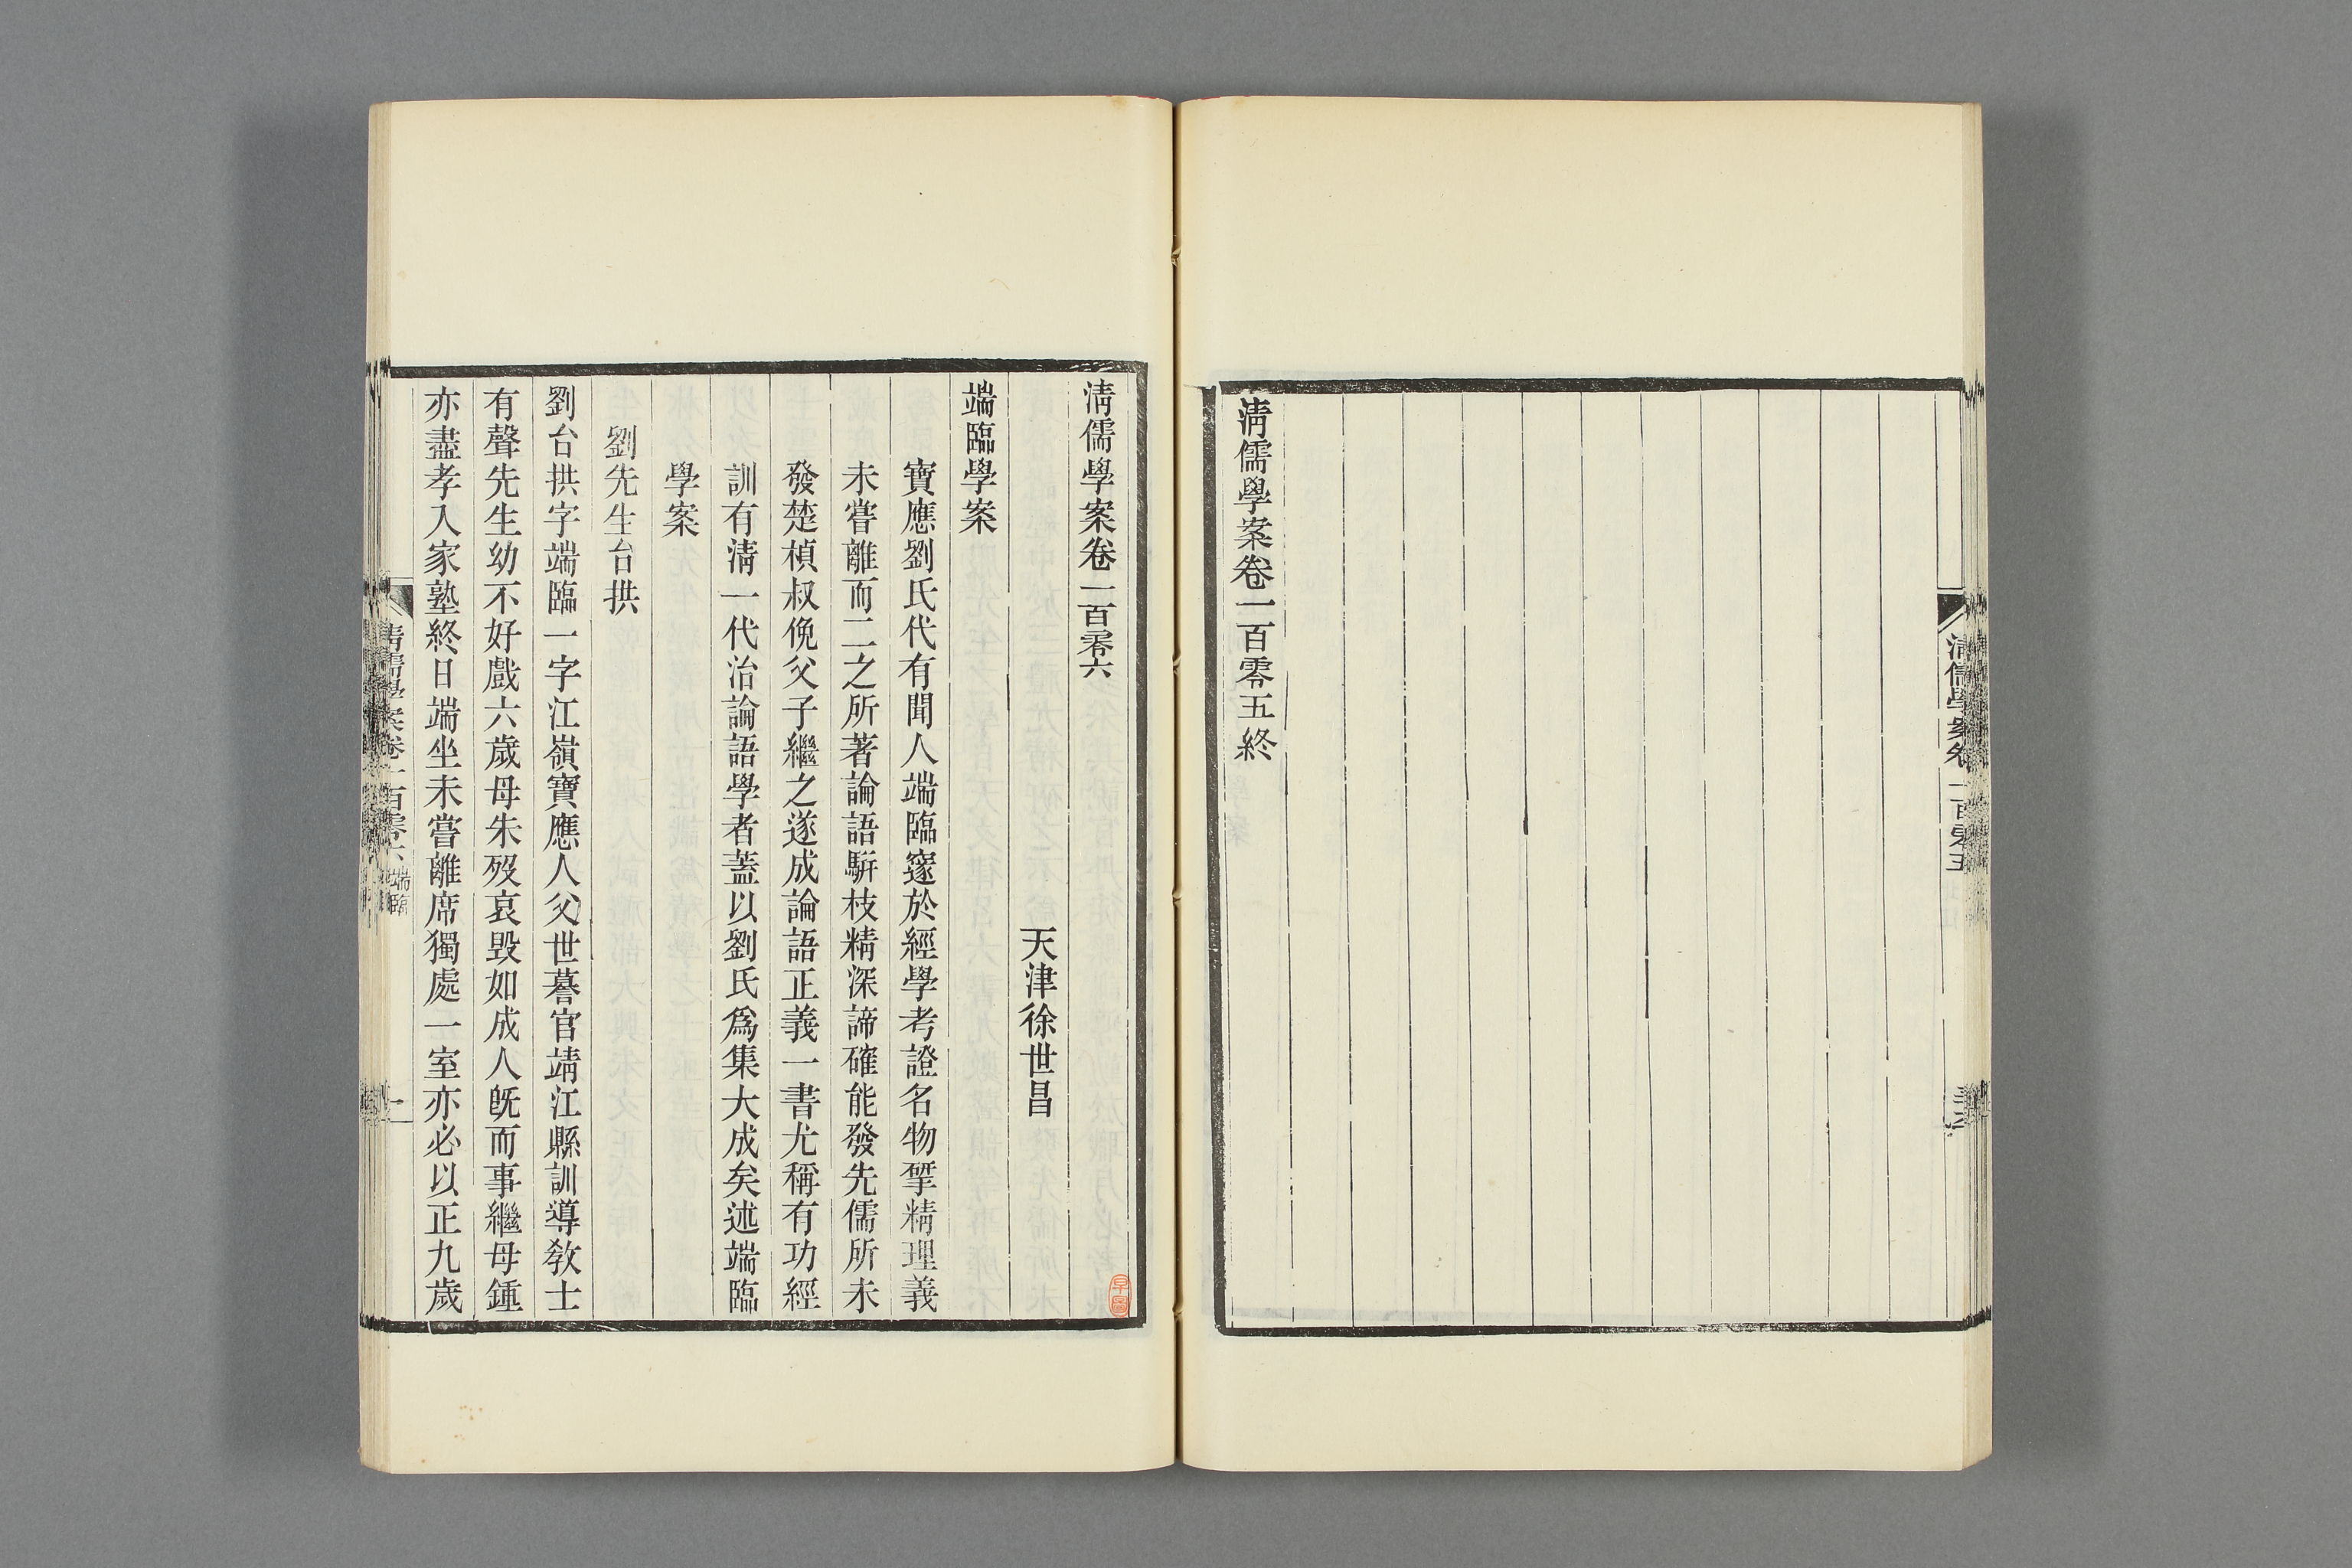 清儒學案卷一百零五
清儒學案卷一百零五終
清儒學案卷一百零六
天津徐世昌
端臨學案
寶應劉氏代有聞人端臨邃於經學考證名物揅精理義
未嘗離而二之所著論語駢枝精深諦確能發先儒所未
發楚楨叔俛父子繼之遂成論語正義一書尤稱有功經
訓有淸一代治論語學者蓋以劉氏爲集大成矣述端臨
學案
劉先生台拱
劉台拱字端臨一字江嶺寶應人父世謩官靖江縣訓導敎士
有聲先生幼不好戲六歲母朱歿哀毀如成人旣而事繼母鍾
亦盡孝入家塾終日端坐未嘗離席獨處一室亦必以正九歲
清儒學案卷一百零六 端臨 一